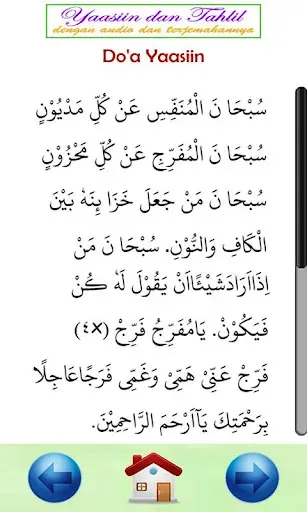 Yaasiin dan Tahlil
dengan audio dan terjemahannya
Do'a Yaasiin
سُبْحَا نَ الْمُنَفِّسِ عَنْ كُلِّ مَدْيُوْنٍ
سُبْحَا نَ الْمُفَرِّجِ عَنْ كُلِّ مَحْزُوْنٍ
سُبْحَا نَ مَنْ جَعَلَ خَزَا ئِنَهٗ بَيْنَ
الْكَافِ وَالنُّوْنِ. سُبْحَا نَ مَنْ
اِذَاَارَادَشَيْئًااَنْ يَقُوْلَ لَهٗ كُنْ
فَيَكُوْنْ. يَامُفَرِّجُ فَرِّجْ (٤x)
فَرِّجْ عَنِّيْ هَمِّيْ وَغَمِّيْ فَرَجًاعَاجِلًا
بِرَحْمَتِكَ يَآاَرْحَمَ الرَّاحِمِيْنَ.